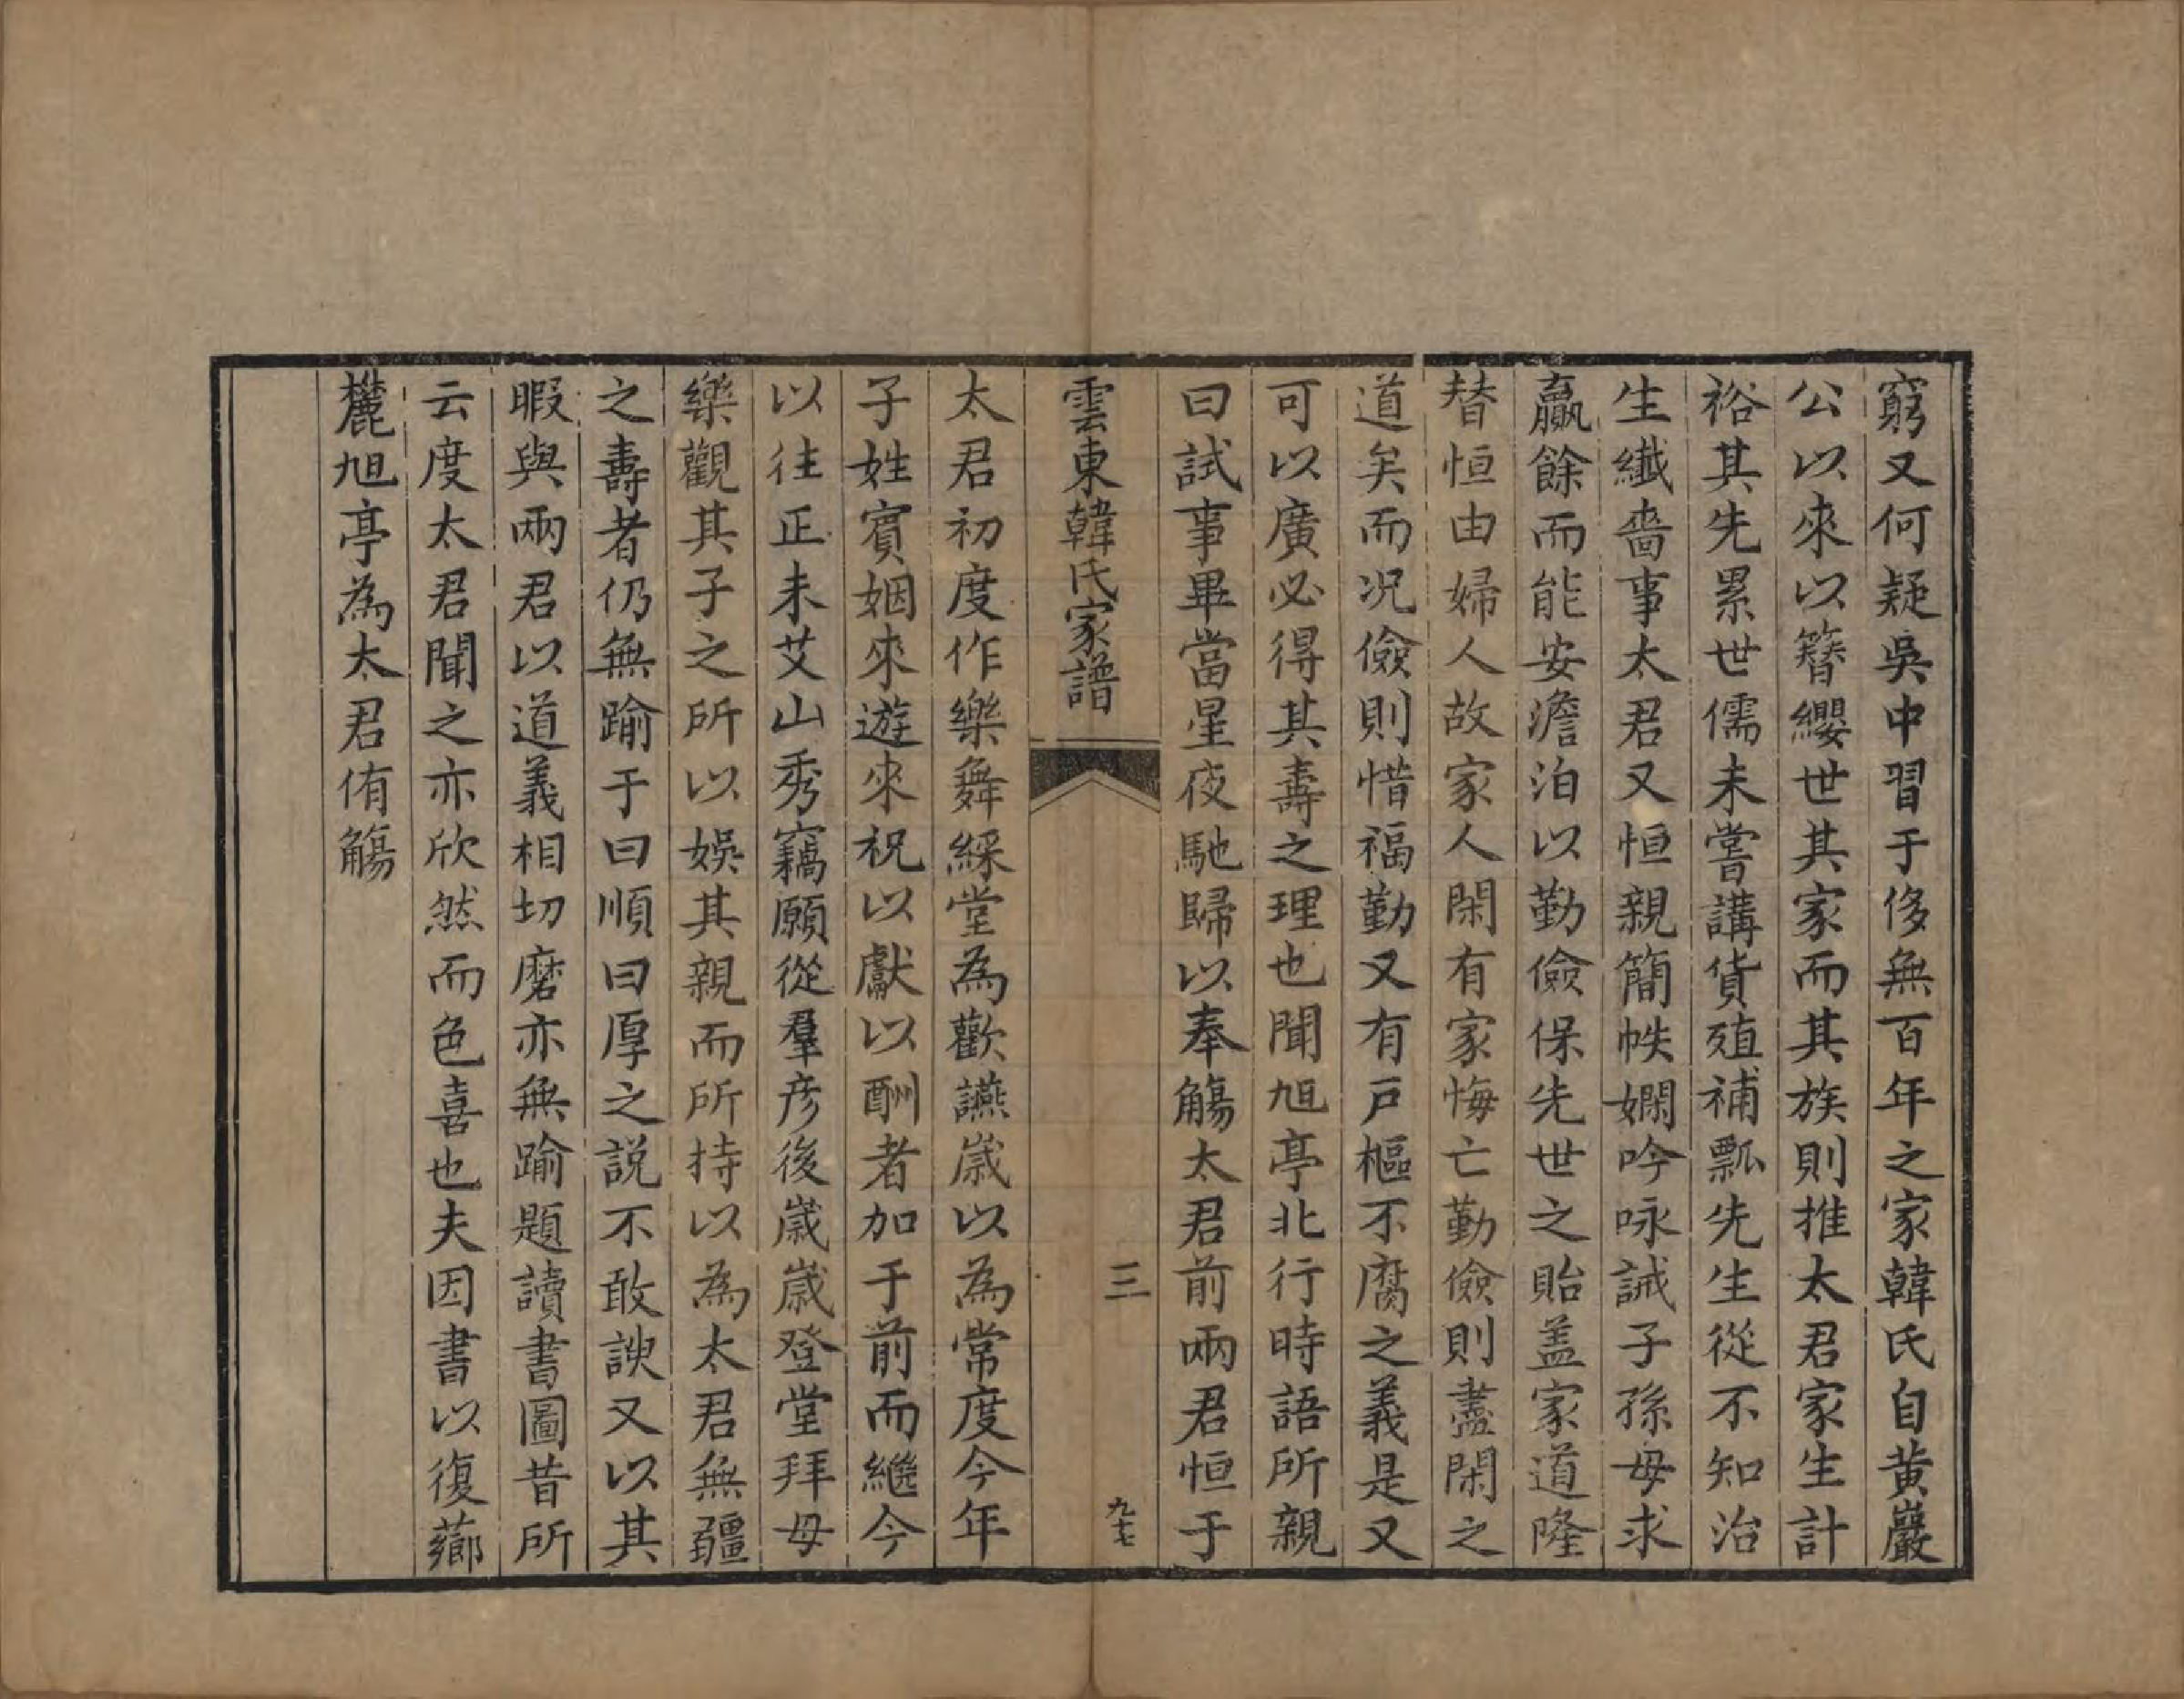 窮又何疑吳中習于侈無百年之家韓氏自黃巖
公以來以簪纓世其家而其族則推太君家生計
裕其先累世儒未嘗講貨殖補瓢先生從不知治
生纖嗇事太君又恒親簡帙嫻吟咏誡子孫毋求
贏餘而能安澹泊以勤儉保先世之貽盖家道隆
替恒由婦人故家人閑有家悔亡勤儉則盡閑之
道矣而况儉則惜福勤又有戶樞不腐之義是又
可以廣必得其壽之理也聞旭亭北行時語所親
曰試事畢當星夜馳歸以奉觴太君前兩君恒于
雲東韓氏家譜
三
九十七
太君初度作樂舞綵堂為歡讌歲以為常度今年
子姓賓姻來遊來祝以獻以酬者加于前而繼今
以往正未艾山秀竊願從羣彥後歲歲登堂拜母
樂觀其子之所以娛其親而所持以為太君無疆
之壽者仍無踰于曰順曰厚之説不敢諛又以其
暇與兩君以道義相切磨亦無踰題讀書圖昔所
云度太君聞之亦欣然而色喜也夫因書以復薌
麓旭亭為太君侑觴